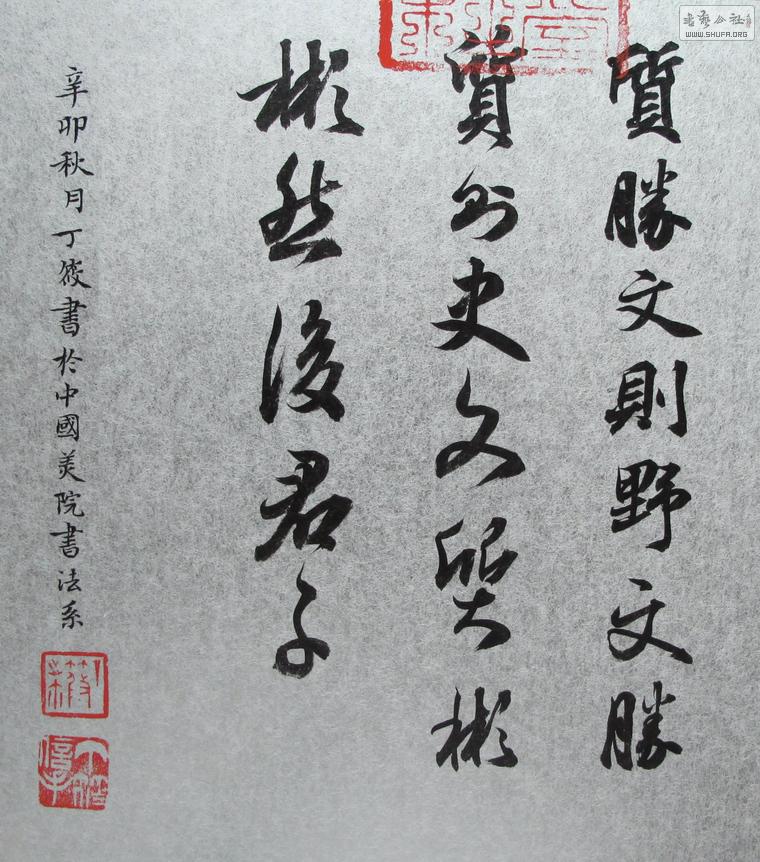 質勝文則野文勝
質則史文質彬
彬然後君子
辛卯秋月丁筱書於中國美院書法系
书艺公社
WWW.SHUFA.ORG